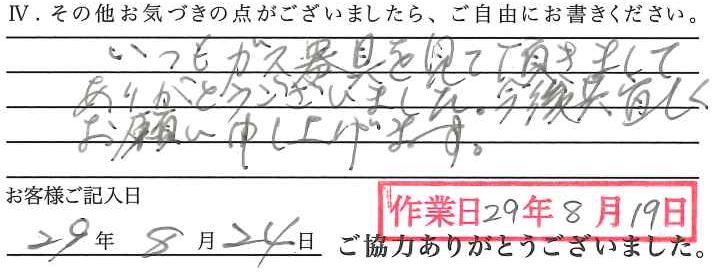 Ⅳ．その他お気づきの点がございましたら、ご自由にお書きください。
いつもガス器具を見て頂きまして
ありがとうございました。今後共宜しく
お願い申し上げます。
お客様ご記入日
作業日29年8月19日
29年8月24日
ご協力ありがとうございました。